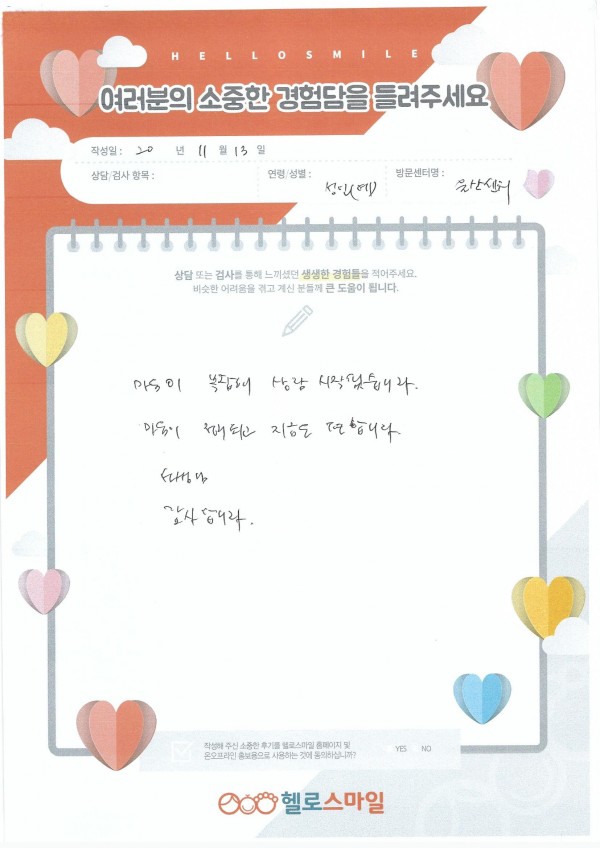 HELLOSMILE
여러분의 소중한 경험담을 들려주세요
작성일 : 20 년 11 월 13 일
상담/검사 항목 :
연령/성별 : 성인(여)
방문센터명 : 울산센터
상담 또는 검사를 통해 느끼셨던 생생한 경험들을 적어주세요.
비슷한 어려움을 겪고 계신 분들께 큰 도움이 됩니다.
마음이 복잡해 상담 시작했습니다.
마음이 정리되고 지금도 편합니다.
선생님
감사합니다.
작성해 주신 소중한 후기를 헬로스마일 홈페이지 및
온오프라인 홍보용으로 사용하는 것에 동의하십니까?
YES NO
헬로스마일